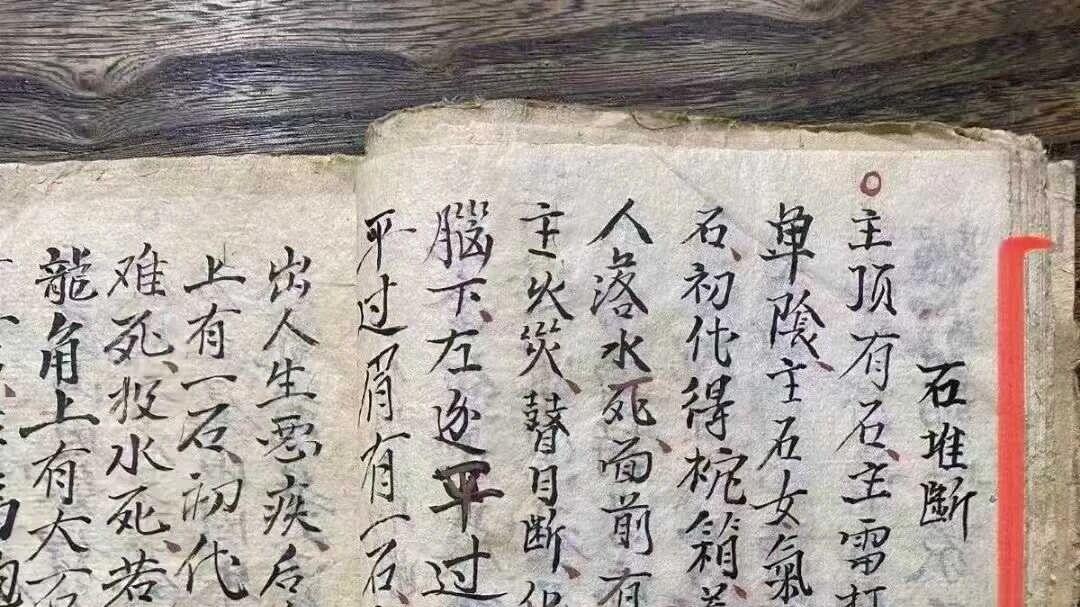 石堆斷
主顶有石、主雷打
單陰、主石女氣
石、初代得棺箱
人落水死、面前有
主火災、瞽目断、
腦下、左边平过
平过眉有一石
出人生惡疾、后
上有一石、初代
难死、投水死、若
龍角上有大石